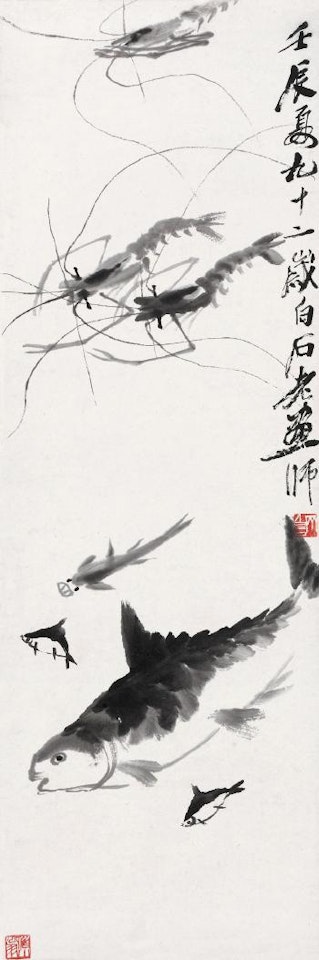 壬辰夏九十二歲白石老畫師